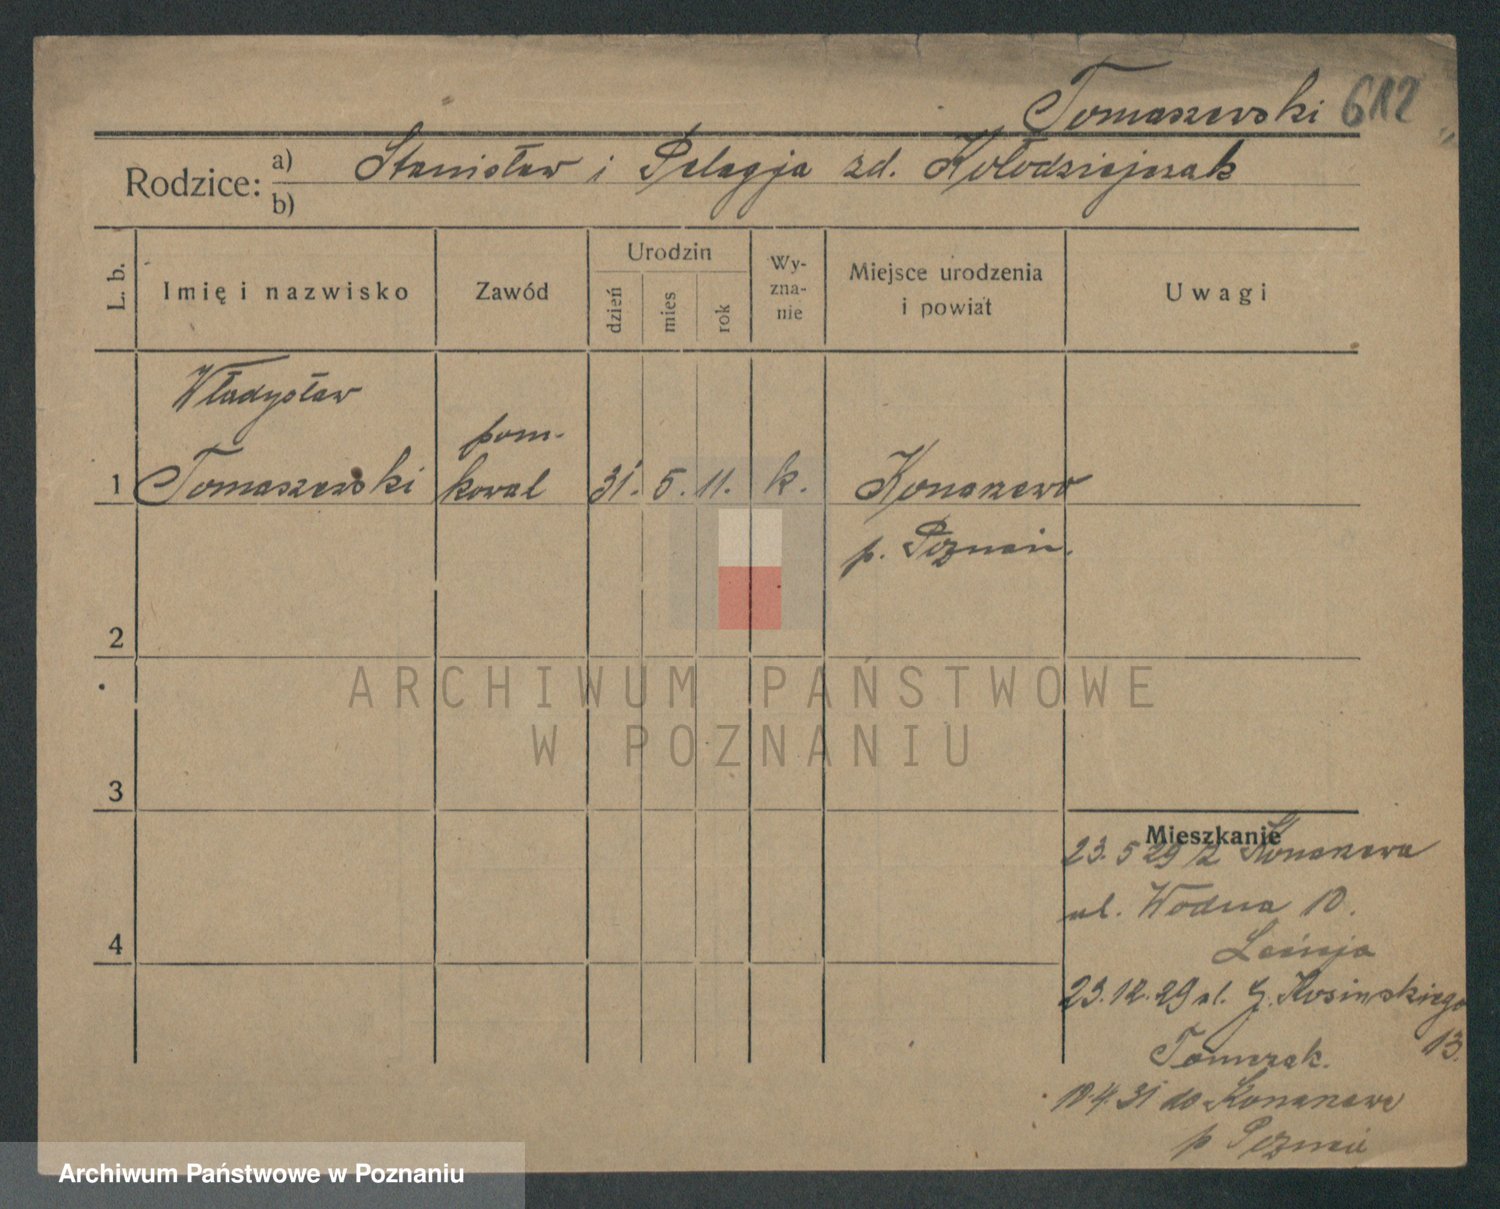 Tomaszewski 612
Rodzice: a) Stanisław i Pelagja zd. Kołodziejczak
b)
L. b.
Imię i nazwisko
Zawód
Urodzin
dzień
mies
rok
Wy-
zna-
nie
Miejsce urodzenia
i powiat
Uwagi
Władysław
pom-
1 Tomaszewski kowal 31. 5. 11. k. Konarzewo
p. Poznań.
2
3
4
Mieszkanie
23. 5 29 z Konarzewa
ul. Wodna 10.
23.12.29 ul. G. Kosińskiego
13.
Tomczak.
10.4.31 do Konarzewo
p Poznań
ARCHIWUM PAŃSTWOWE
W POZNANIU
Archiwum Państwowe w Poznaniu